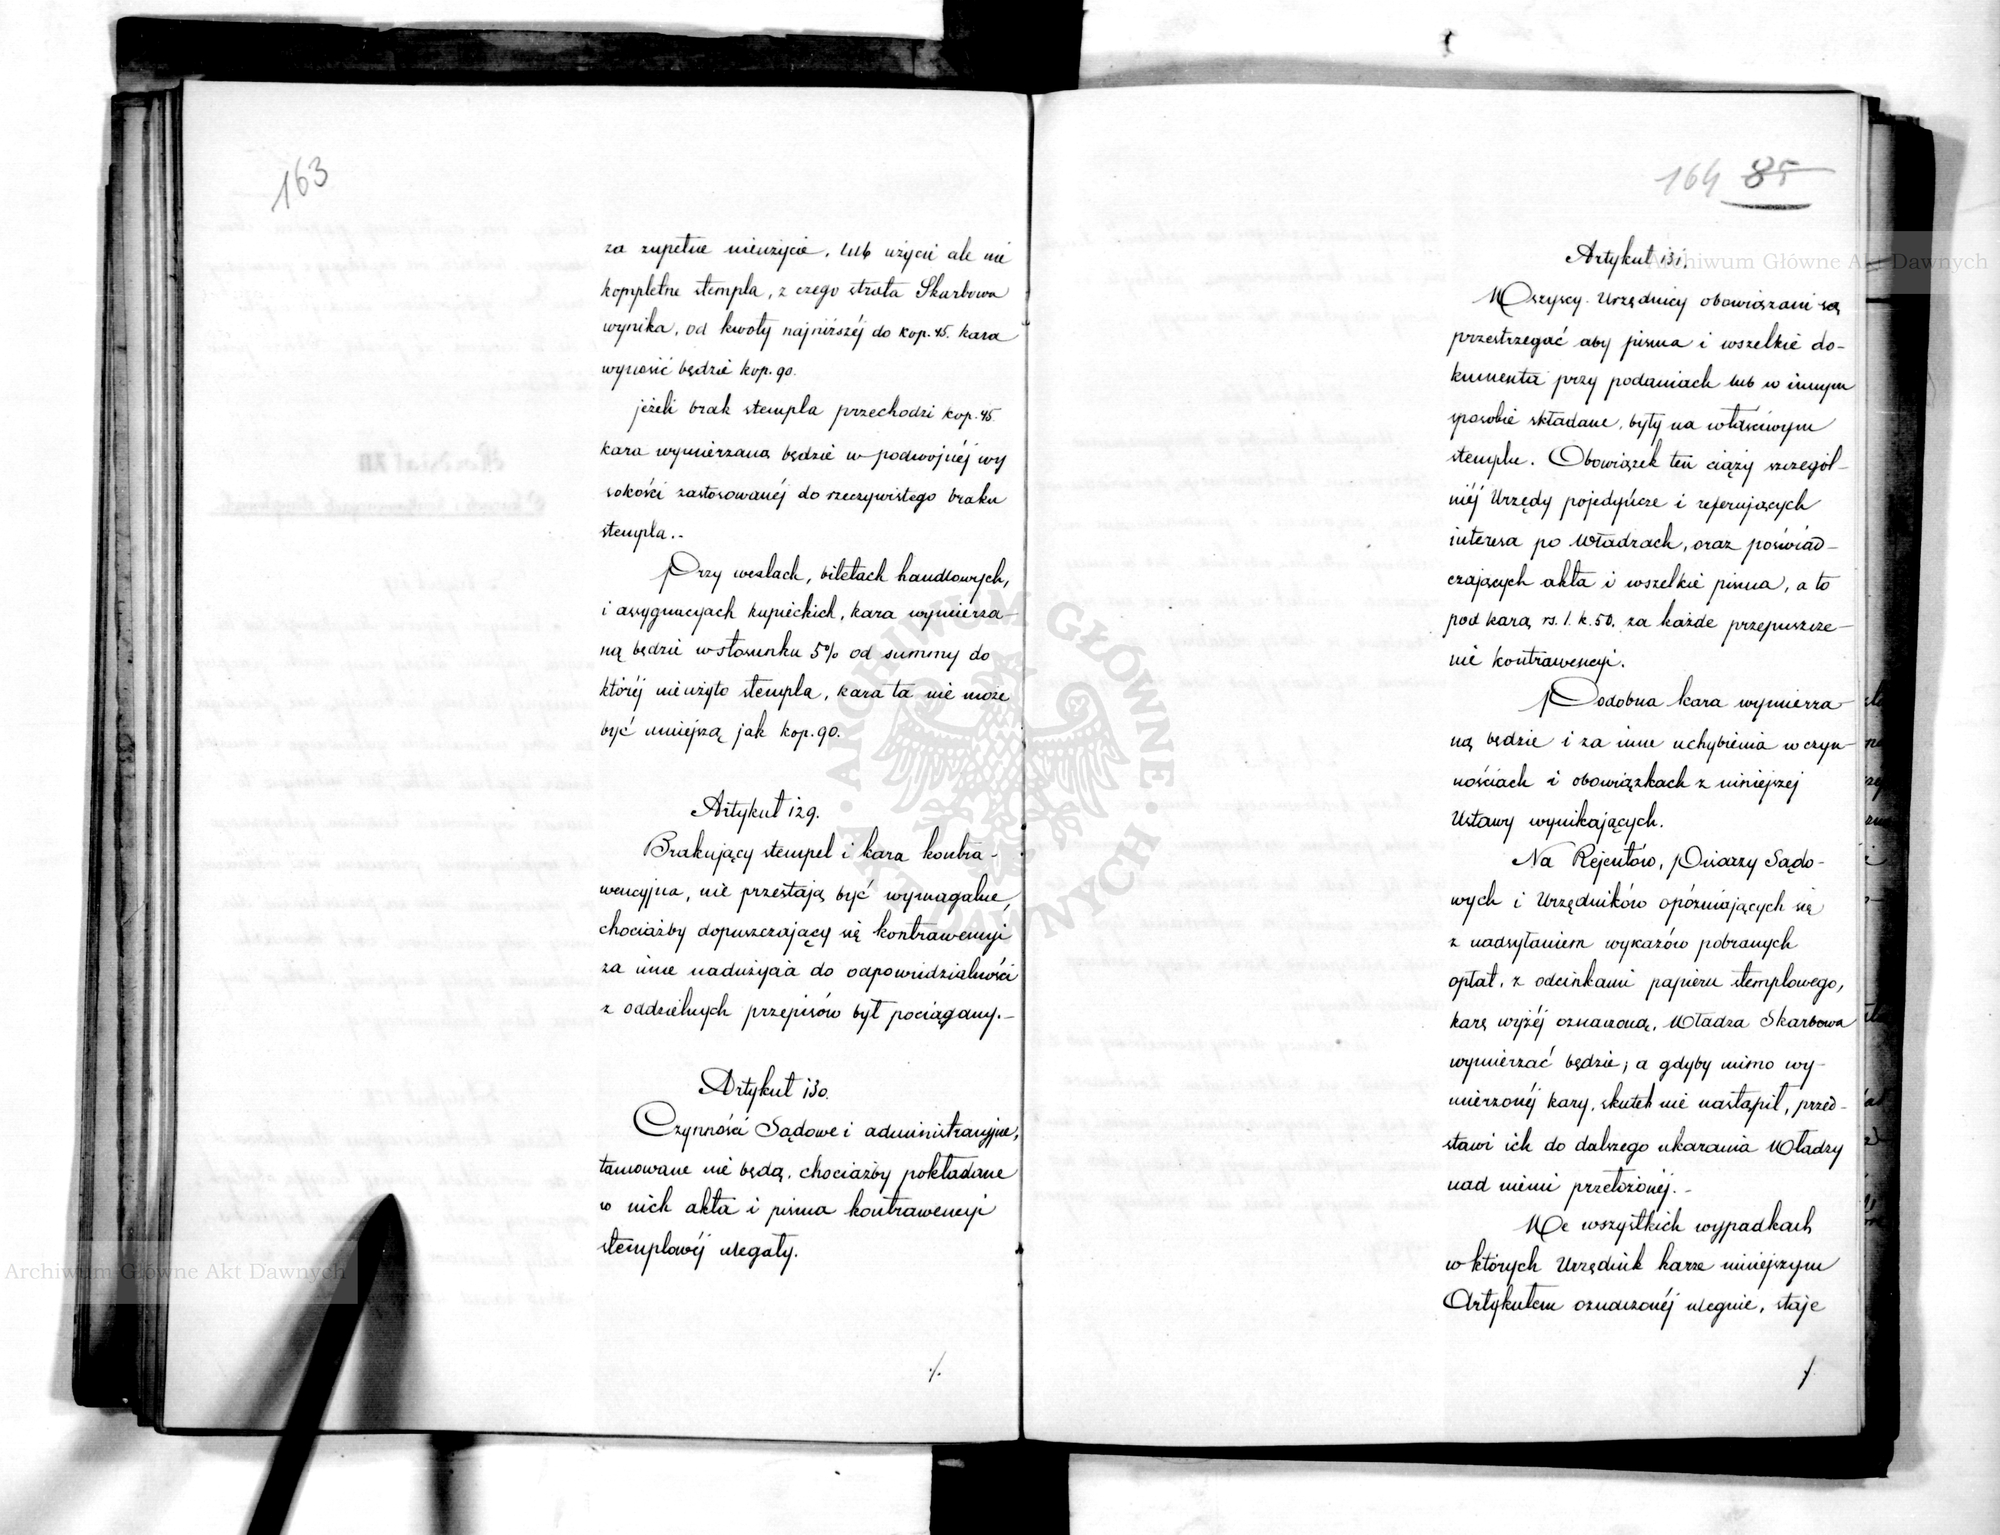 163
za zupełne nieużycie, lub użycie ale nie
kompletne stempla, z czego strata Skarbowa
wynika, od kwoty najniższéj do kop. 45. kara
wynosić będzie kop. 90.
jeżeli brak stempla przechodzi kop. 45.
kara wymierzaną będzie w podwojnéj wy
sokości zastosowanéj do rzeczywistego braku
stempla.-
Przy wexlach, biletach handlowych,
i assygnacyach kupieckich, kara wymierza-
ną będzie w stosunku 5% od summy do
któréj nieużyto stempla, kara ta nie może
być mniejszą jak kop. 90.
Artykuł 129.
Brakujący stempel i kara kontra-
wencyjna, nie przestają być wymagalne,
chociażby dopuszczający się kontrawencyi
za inne nadużycia do odpowiedzialności
z oddzielnych przepisów był pociągany.-
Artykuł 130.
Czynności Sądowe i administracyjne,
tamowane nie będą, chociażby pokładane
w nich akta i pisma kontrawencyi
stemplowéj uległy.
./.
164 85
Artykuł 131.
Wszyscy Urzędnicy obowiązani są
przestrzegać aby pisma i wszelkie do-
kumenta przy podaniach lub w innym
sposobie składane, były na właściwym
stemplu. Obowiązek ten ciąży szczegól-
niéj Urzędy pojedyńcze i referujących
interesa po Władzach, oraz poświad-
czających akta i wszelkie pisma, a to
pod karą rs. 1. k. 50. za każde przepuszcze-
nie kontrawencyi.
Podobna kara wymierza-
ną będzie i za inne uchybienia w czyn-
nościach i obowiązkach z niniejszej
Ustawy wynikających.
Na Rejentów, Pisarzy Sądo-
wych i Urzędników opóźniających się
z nadsyłaniem wykazów pobranych
opłat, z odcinkami papieru stemplowego,
karę wyżéj oznaczoną, Władza Skarbowa
wymierzać będzie; a gdyby mimo wy-
mierzonéj kary, skutek nie nastąpił, przed-
stawi ich do dalszego ukarania Władzy
nad niemi przełożonéj.-
We wszystkich wypadkach
w których Urzędnik karze niniejszym
Artykułem oznaczonéj ulegnie, staje
/
Archiwum Główne Akt Dawnych
Archiwum Główne Akt Dawnych
ARCHIWUM GŁÓWNE · AKT DAWNYCH ·